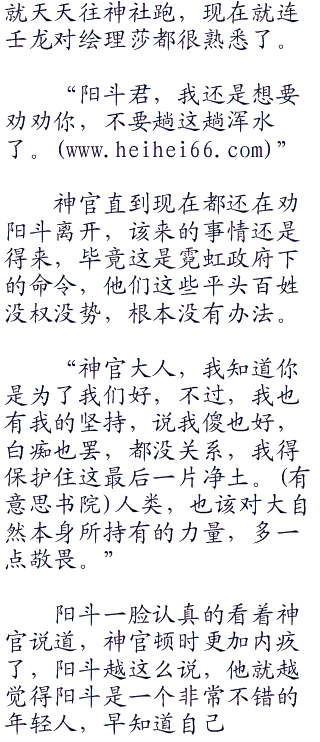 就天天往神社跑，现在就连
壬龙对绘理莎都很熟悉了。
“阳斗君，我还是想要
劝劝你，不要趟这趟浑水
了。(www.heihei66.com)”
神官直到现在都还在劝
阳斗离开，该来的事情还是
得来，毕竟这是霓虹政府下
的命令，他们这些平头百姓
没权没势，根本没有办法。
“神官大人，我知道你
是为了我们好，不过，我也
有我的坚持，说我傻也好，
白痴也罢，都没关系，我得
保护住这最后一片净土。(有
意思书院)人类，也该对大自
然本身所持有的力量，多一
点敬畏。”
阳斗一脸认真的看着神
官说道，神官顿时更加内疚
了，阳斗越这么说，他就越
觉得阳斗是一个非常不错的
年轻人，早知道自己